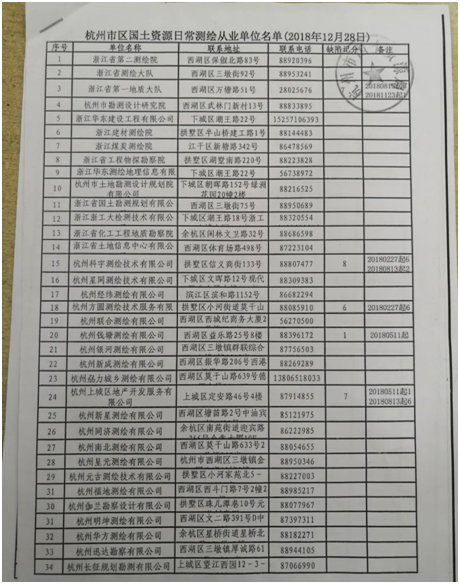 杭州市区国土资源日常测绘从业单位名单(2018年12月28日)
序号 单位名称 联系地址 联系电话 缺陷记分 备注
1 浙江省第二测绘院 西湖区保俶北路83号 88920396
2 浙江测绘大队 西湖区三墩街92号 88953241
3 浙江省第一地质大队 西湖区万塘路51号 28025676 20181123起1
4 杭州市勘测设计研究院 西湖区武林门新村13号 88833895
5 浙江华东建设工程有限公司 下城区潮王路22号 15257106393
6 浙江建材测绘院 拱墅区半山桥建工路1号 88144483
7 浙江煤炭测绘院 江干区新塘路342号 86478569
8 浙江省工程物探勘察院 拱墅区湖墅南路220号 88223828
9 浙江华东测绘地理信息有限 下城区潮王路22号 56738972
10 杭州市土地勘测设计规划院有限公司 下城区朝晖路152号绿洲花园20幢2楼 88216525
11 浙江省国土勘测规划有限公 西湖区三墩街75号 88950689
12 浙江浙工大检测技术有限公 下城区潮王路18号浙工 88320554
13 浙江省化工工程地质勘察院 余杭区闲林文卫路32号 88686598
14 浙江省土地信息中心有限公 西湖区体育场路498号 87223104
15 杭州科宇测绘技术有限公司 拱墅区信义商街133号 88807477 8 20180227起6 20180813起2
16 杭州星网测绘技术有限公司 下城区文晖路12号现代 88309383
17 杭州经纬测绘有限公司 滨江区滨和路1152号 86682294
18 杭州方圆测绘技术服务有限 拱墅区小河街道莫干山 88085910 6 20180227起6
19 杭州联合测绘有限公司 西湖区西城纪商务大厦2 56270500
20 杭州钱塘测绘有限公司 西湖区益乐路25号8楼 88396172 1 20180511起
21 杭州银河测绘有限公司 西湖区三墩镇群联综合 87756503
22 杭州新成测绘有限公司 西湖区振华路206号西港 88269289
23 杭州磊力城乡测绘有限公司 西湖区莫干山路639号德 13806518033
24 杭州上城区地产开发服务有限公司 上城区定安路46号4楼 87914855 7 20180511起1 20180813起6
25 杭州新星测绘有限公司 西湖区塘苗路2号中油宾 85121975
26 杭州同济测绘有限公司 余杭区南苑街道迎宾路 86222985
27 杭州南北测绘有限公司 西湖区莫干山路633号2 88054655
28 杭州星光测绘有限公司 杭州市西湖区三墩镇金 88950346
29 杭州元吉测绘技术有限公司 拱墅区小河家苑北5- 88227003
31 杭州福地测绘有限公司 西湖区西斗门路7号2幢2 88985217
30 杭州伽兰勘察设计有限公司 拱墅区珠儿潭巷10号元 88077967
31 杭州明坤测绘有限公司 西湖区文二路391号D中 87397311
32 杭州华方测绘有限公司 余杭区星桥街道星桥北 88182271
33 杭州迅达勘察有限公司 西湖区三墩镇厚诚路61 88944105
34 杭州长征规划勘测有限公司 上城区望江西园12-3- 87066990